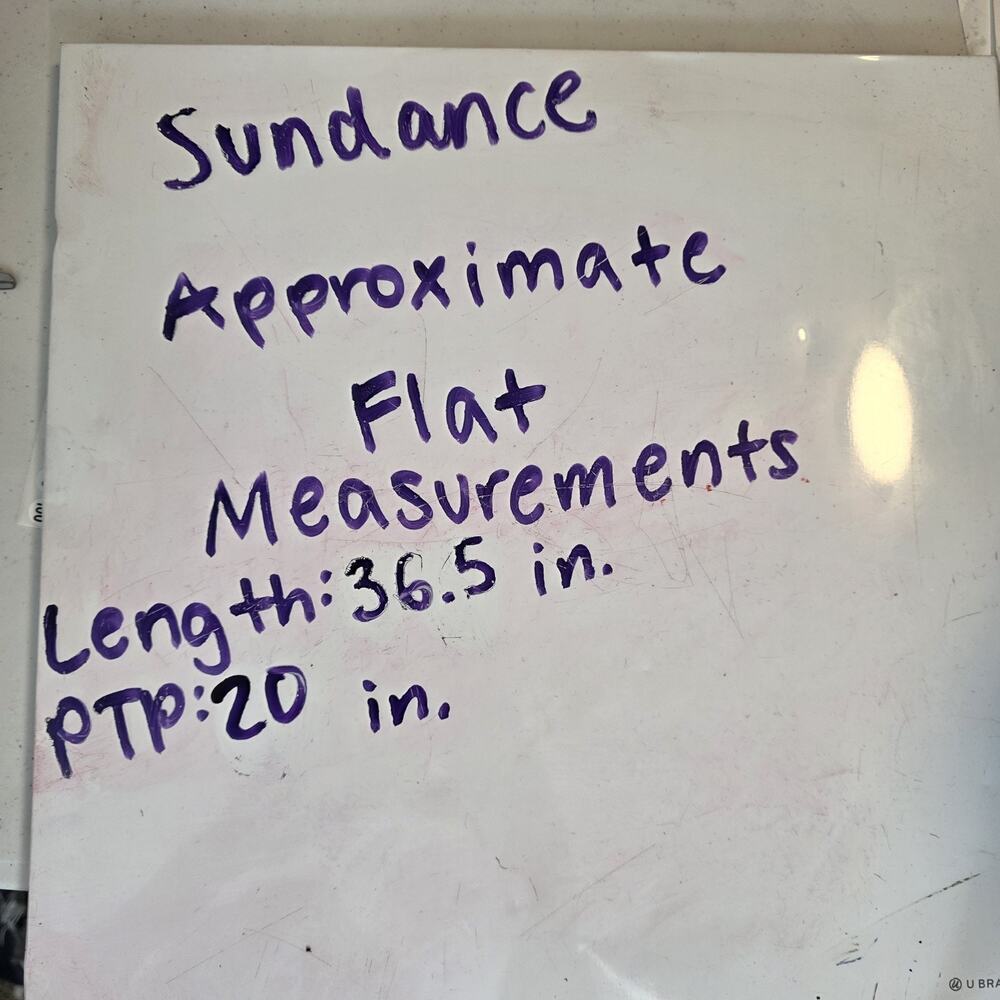 Sundance
Approximate
Flat
Measurements
Length: 36.5 in.
PTP: 20 in.
U BRA